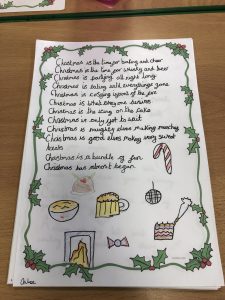 Christmas is the time for baking and cheer
Christmas is the time for whisky and beer
Christmas is partying all night long
Christmas is eating till everythings gone
Christmas is cosying by the fire
Christmas is what everyone desires
Christmas is the icing on the cake
Christmas is only just to wait
Christmas is naughty elves making
Christmas is good elves making very sweet
treats
Christmas is a bundle of fun
Christmas has almost begun